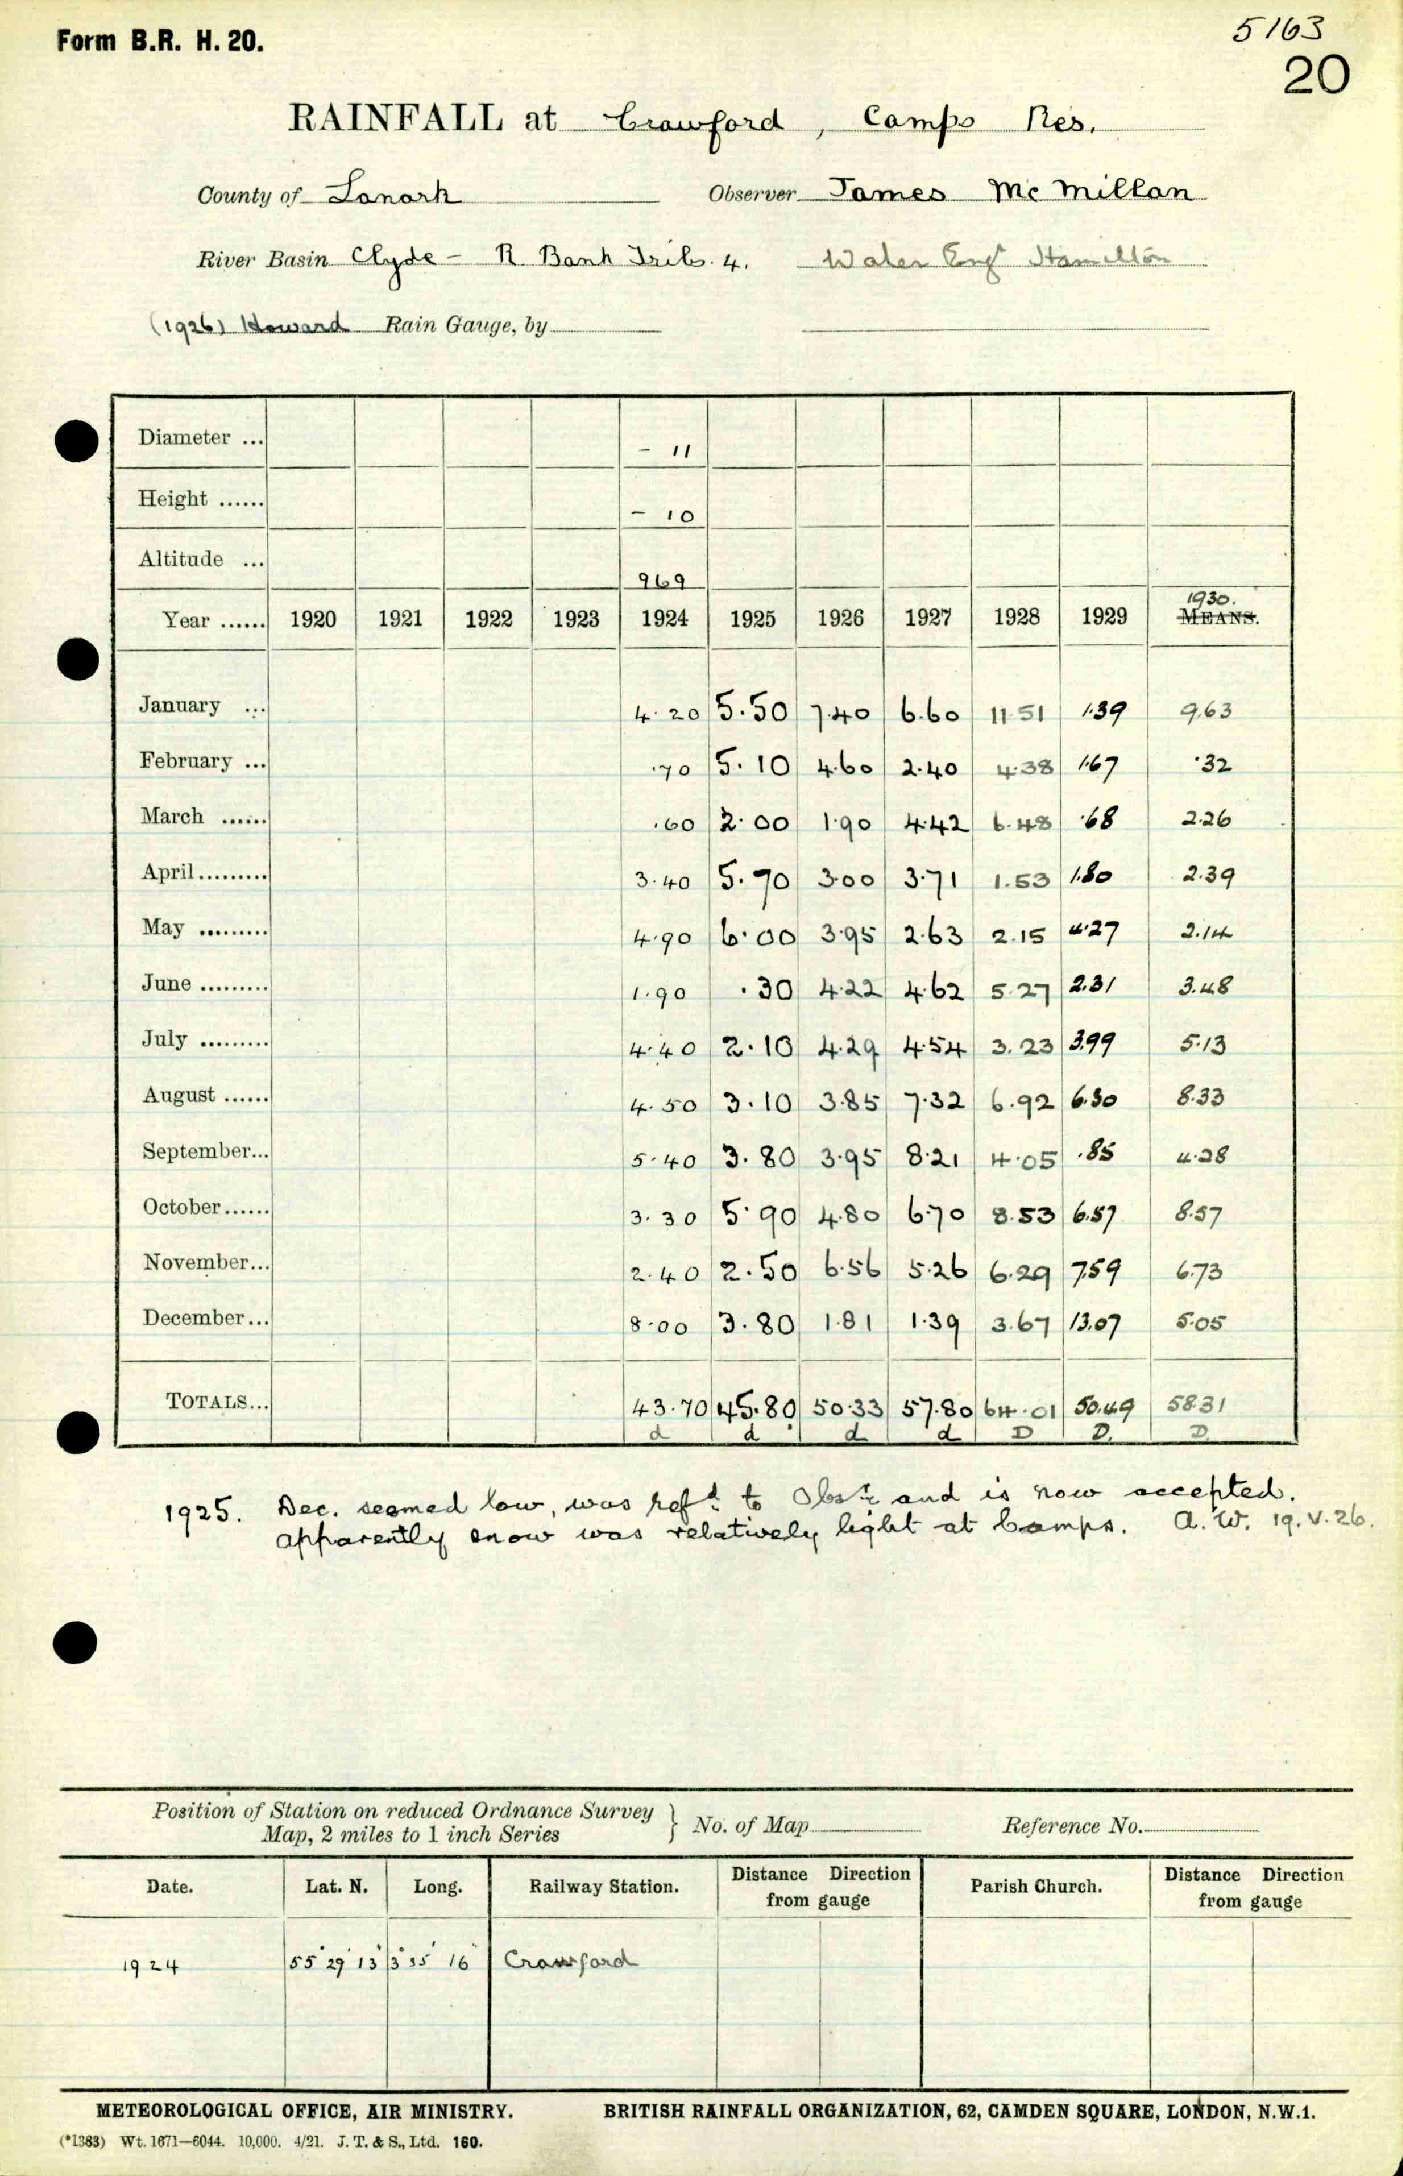 Form B.R. H. 20.
5163
20
RAINFALL at Crawford, Camps Res.
County of Lanark Observer James McMillan
River Basin Clyde - R Bank Tribs. 4. Water Engr Hamilton
(1926) Howard Rain Gauge, by
Diameter ... - 11
Height ...... - 10
Altitude ... 969
1930.
Year ...... 1920 1921 1922 1923 1924 1925 1926 1927 1928 1929 MEANS.
January ... 4.20 5.50 7.40 6.60 11.51 1.39 9.63
February ... .70 5.10 4.60 2.40 4.38 1.67 .32
March ...... .60 2.00 1.90 4.42 6.48 .68 2.26
April......... 3.40 5.70 3.00 3.71 1.53 1.80 2.39
May ......... 4.90 6.00 3.95 2.63 2.15 4.27 2.14
June ......... 1.90 .30 4.22 4.62 5.27 2.31 3.48
July ......... 4.40 2.10 4.29 4.54 3.23 3.99 5.13
August ...... 4.50 3.10 3.85 7.32 6.92 6.30 8.33
September... 5.40 3.80 3.95 8.21 4.05 .85 4.28
October...... 3.30 5.90 4.80 6.70 8.53 6.57 8.57
November... 2.40 2.50 6.56 5.26 6.29 7.59 6.73
December... 8.00 3.80 1.81 1.39 3.67 13.07 5.05
TOTALS... 43.70 45.80 50.33 57.80 64.01 50.49 58.31
d d d d D D. D
1925. Dec. seemed low, was refd. to Obsr. and is now accepted.
apparently snow was relatively light at Camps. A.W. 19.V.26.
Position of Station on reduced Ordnance Survey
Map, 2 miles to 1 inch Series } No. of Map Reference No.
Date. Lat. N. Long. Railway Station. Distance Direction from gauge Parish Church. Distance Direction from gauge
1924 55° 29' 13" 3° 35' 16" Crawford
METEOROLOGICAL OFFICE, AIR MINISTRY. BRITISH RAINFALL ORGANIZATION, 62, CAMDEN SQUARE, LONDON, N.W.1.
(*1383) Wt. 1671—6044. 10,000. 4/21. J. T. & S., Ltd. 160.